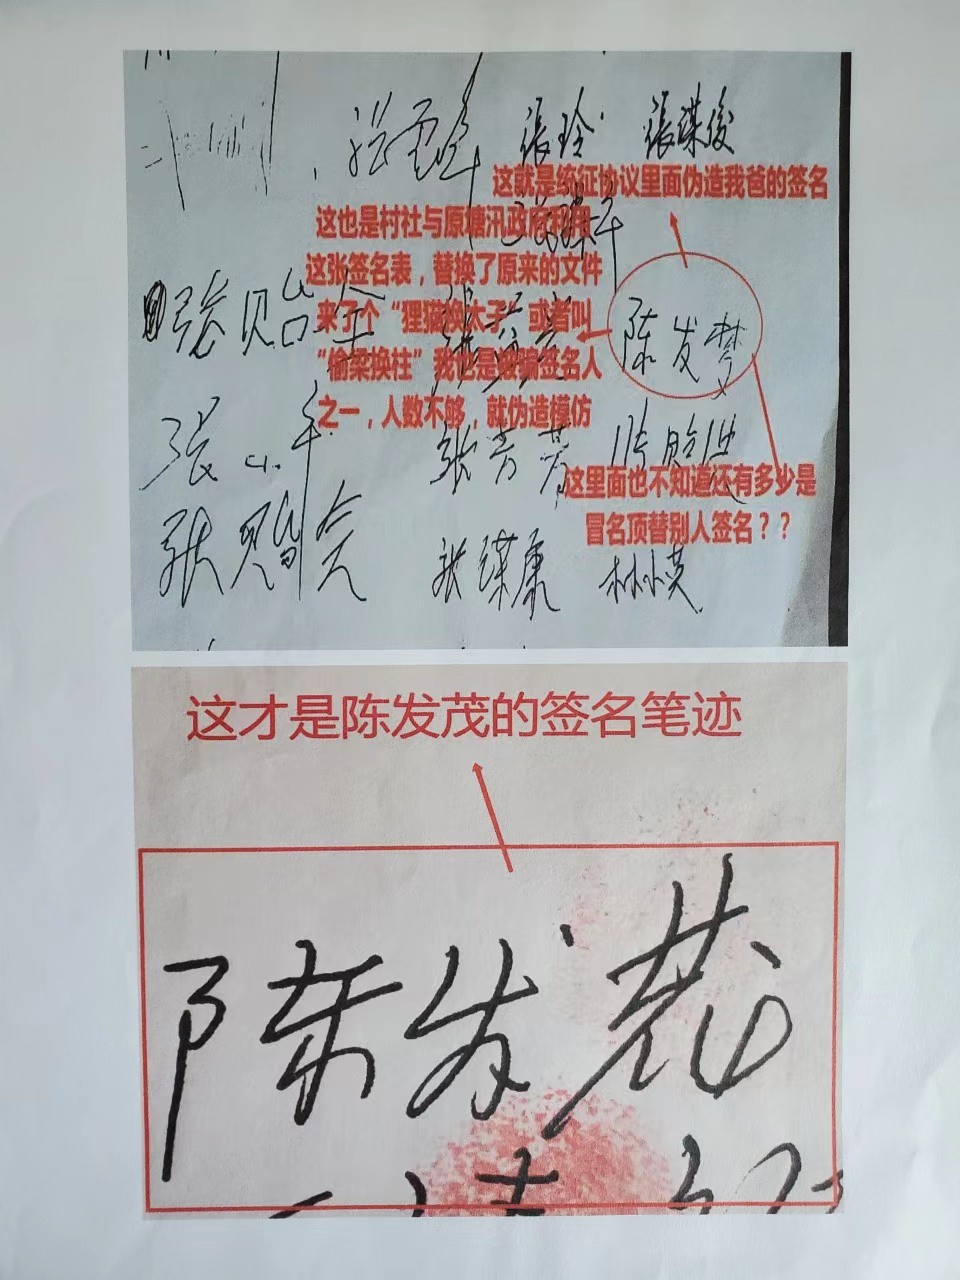 張玲 張謀俊
这就是统征协议里面伪造我爸的签名
这也是村社与原塘汛政府利用
这张签名表，替换了原来的文件
来了个“狸猫换太子”或者叫
“偷梁换柱”我也是被骗签名人
之一，人数不够，就伪造模仿
张贻全
陈发梦
张小平 张芳芳
这里面也不知道还有多少是
冒名顶替别人签名？？
张谋康 林小英
这才是陈发茂的签名笔迹
陈发茂